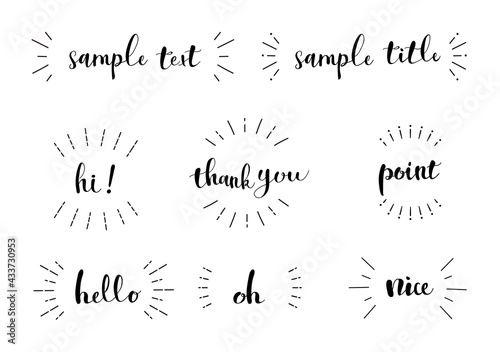 sample text
sample title
hi!
thank you
point
hello
oh
nice
Adobe Stock | #433730953